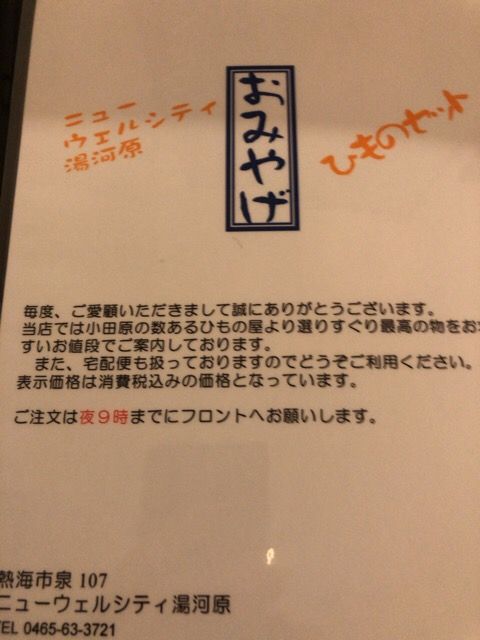 ニュー
ウェルシティ
湯河原
おみやげ
ひものセット
毎度、ご愛顧いただきまして誠にありがとうございます。
当店では小田原の数あるひもの屋より選りすぐり最高の物をお
すいお値段でご案内しております。
また、宅配便も扱っておりますのでどうぞご利用ください。
表示価格は消費税込みの価格となっています。
ご注文は夜9時までにフロントへお願いします。
熱海市泉 107
ニューウェルシティ湯河原
TEL 0465-63-3721